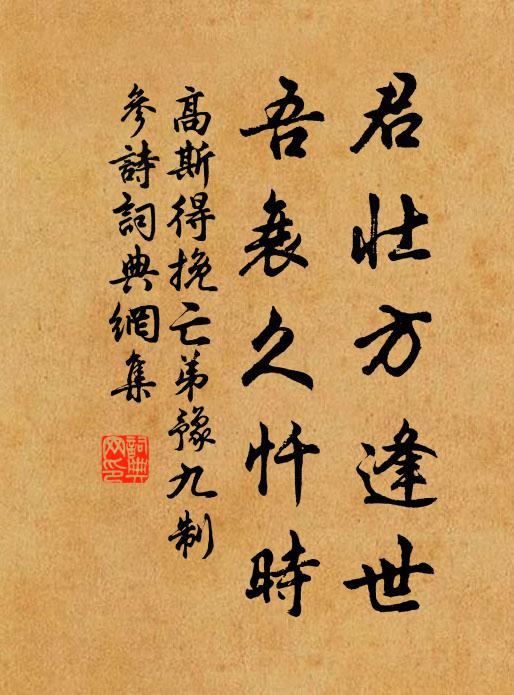 君壮方逢世
吾衰久忤時
高斯得挽亡弟豫九制
參詩詞典網集
詞典网印